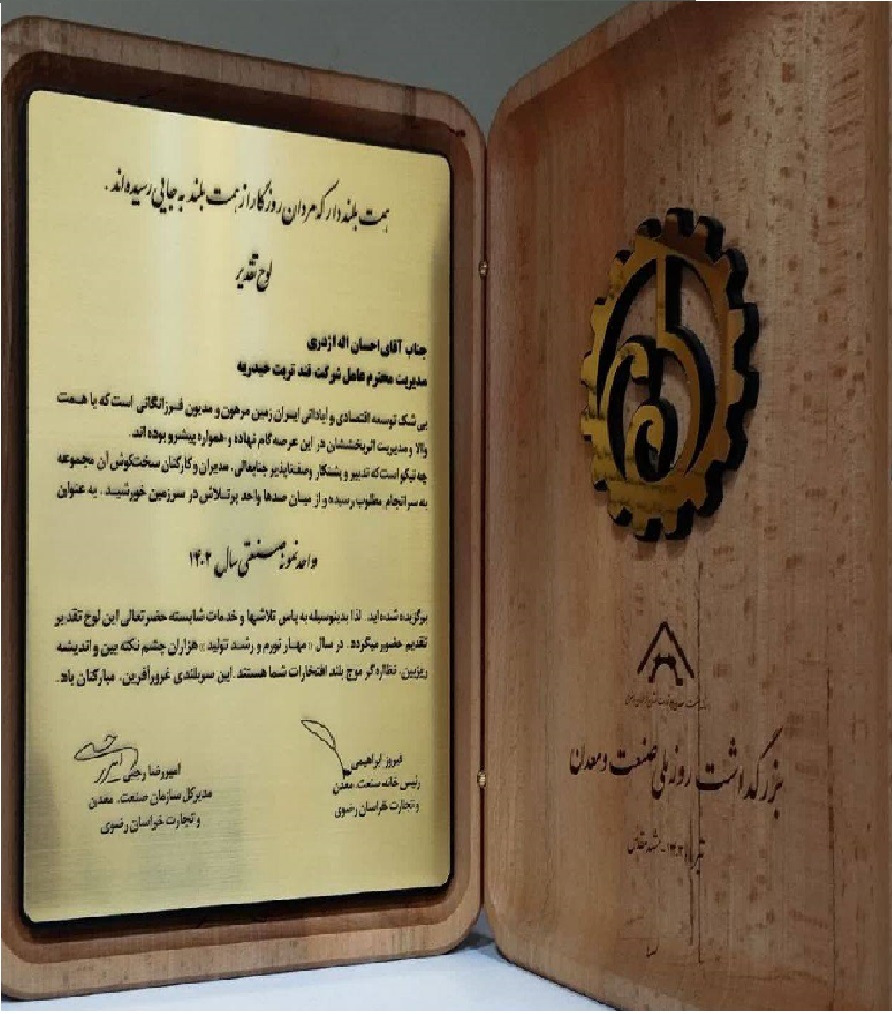 همت بلند دار که مردان روزگار از همت بلند به جایی رسیده اند.
لوح تقدیر
جناب آقای احسان اله اژدری
مدیریت محترم عامل شرکت قند تربت حیدریه
بی شک توسعه اقتصادی و آبادانی ایران زمین مرهون و مدیون فرزانگانی است که با همت
والا و مدیریت اثربخششان در این عرصه گام نهاده و همواره پیشرو بوده اند.
چه نیکو است که تدبیر و پشتکار وصف‌ناپذیر جنابعالی، مدیران و کارکنان سخت‌کوش آن مجموعه
به سرانجام مطلوب رسیده و از میان صدها واحد پرتلاش در سرزمین خورشید، به عنوان
واحد نمونه صنعتی سال ۱۴۰۲
برگزیده شده اید. لذا بدینوسیله به پاس تلاشها و خدمات شایسته حضرتعالی این لوح تقدیر
تقدیم حضور میگردد. در سال «مهار تورم و رشد تولید» هزاران چشم نکته بین و اندیشه
ریزبین، نظاره گر موج بلند افتخارات شما هستند. این سربلندی غرورآفرین، مبارکتان باد.
فیروز ابراهیمی
رئیس خانه صنعت، معدن
و تجارت خراسان رضوی
امیررضا رجبی
مدیرکل سازمان صنعت، معدن
و تجارت خراسان رضوی
بزرگداشت روز ملی صنعت و معدن
تیرماه ۱۴۰۲ - مشهد مقدس